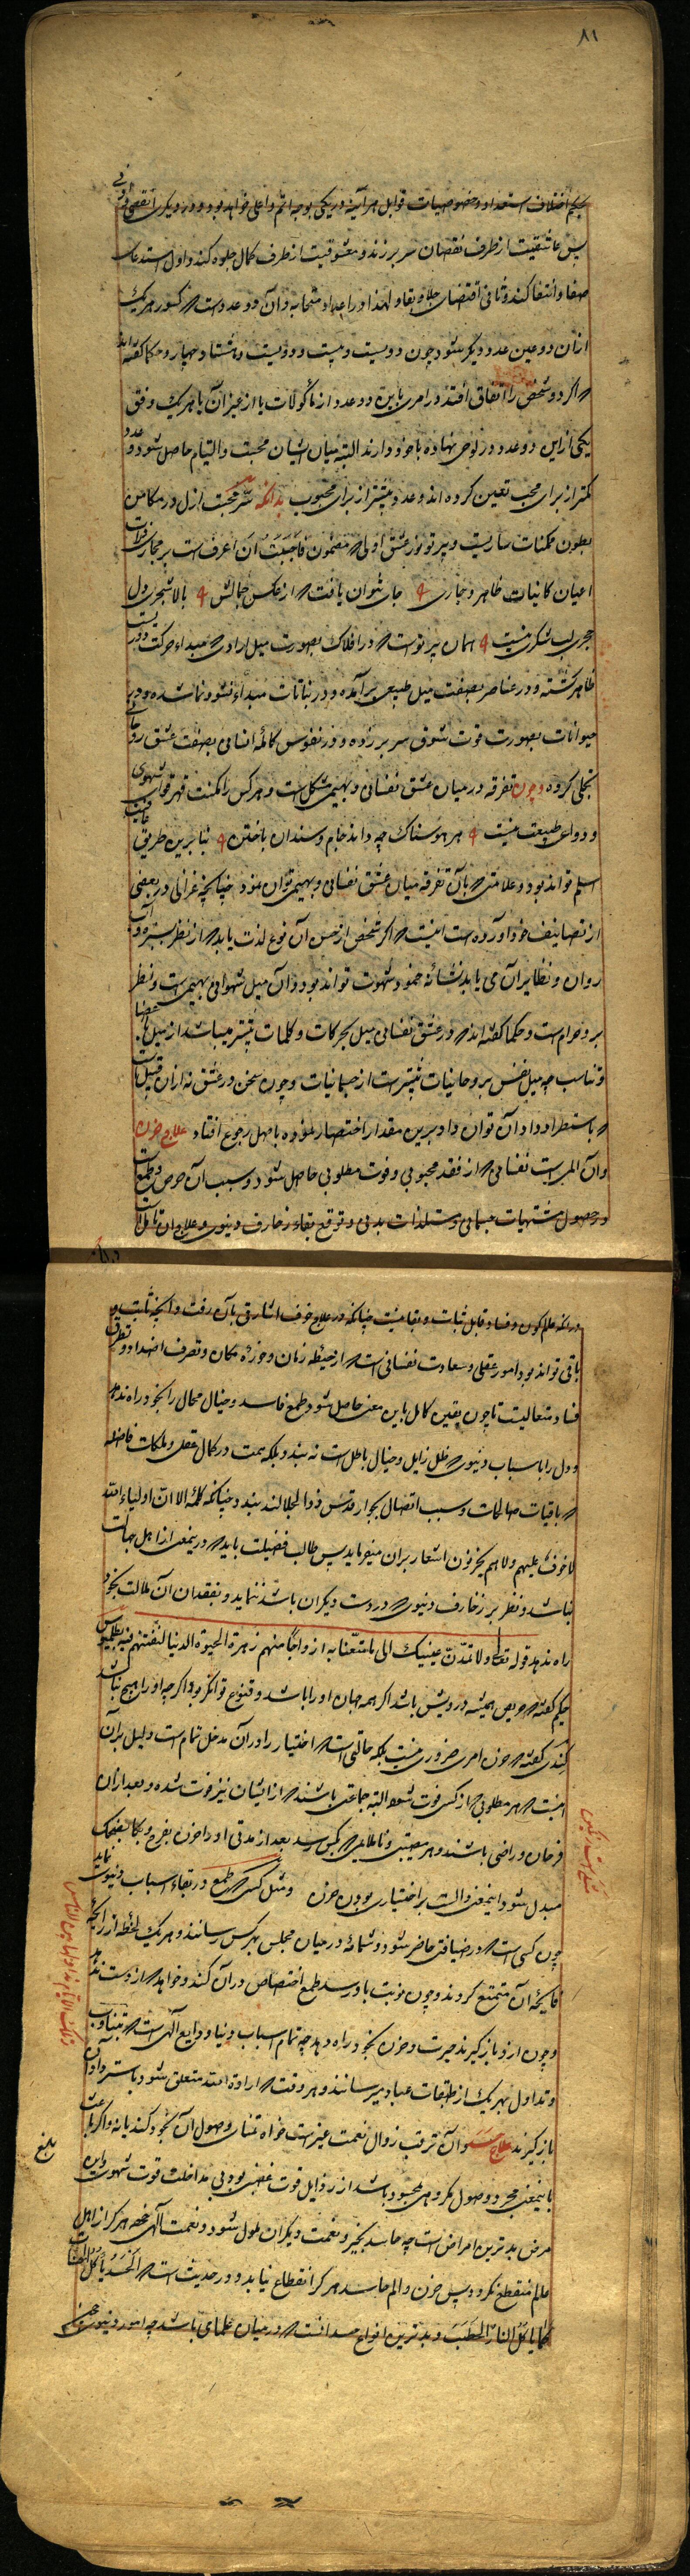 ۸۱
بحکم اختلاف استعداد و خصوصیات قوابل هر آینه در یکی بوجه اتم و اعلی خواهد بود و در دیگری انقص و ادنی
پس عاشقیت از طرف نقصان سر بر زند و معشوقیت از طرف کمال جلوه کند و اول استدعاء
صفا و انتفا کند و ثانی اقتضای جلا و بقا و لهذا در اعداد متحابه و آن دو عدد است که کسور هر یک
ازان دو عین عدد دیگر شود چون دویست و بیست و دویست و هشتاد و چهار و حکما گفته اند
که اگر دو شخص را اتفاق افتد در امری باین دو عدد از ماکولات یا از غیر آن یا هر یک وفق
یکی از این دو عدد در لوحی نهاده با خود دارند البته میان ایشان محبت و التیام حاصل شود و عدد
کمتر از برای محب تعین کرده اند و عدد بیشتر از برای محبوب بدانکه سر محبت ازل در مکامن
بطون ممکنات ساریست و پرتو نور عشق اولی که مضمون فَاحْبَبْتُ اَنْ اُعرف است بر مجاری ذرات
اعیان کاینات ظاهر و جاری جای نتوان یافت که از عکس جمالش بالا شجری ول
حجری بت شکری نیست همان پرتو است که در افلاک بصورت میل ارادی که مبداء حرکت دوریست
ظاهر گشته و در عناصر بصفت میل طبیعی برآمده و در نباتات مبداء نشو و نما شده و در
حیوانات بصورت قوت شوق سر بر زده و در نفوس کامله انسانی بصفت عشق روحانی
تجلی کرده و چون تفرقه در میان عشق نفسانی و بهیمی مشکل است و هر کس را مکنت قهر قوای شهوی
و دواعی طبیعت نیست هر هوسناک چه داند جام و سندان باختن بنا برین طریق
اسلم تواند بود و علامتی که بآن تفرقه میان عشق نفسانی و بهیمی توان نمود چنانچه غزالی در بعضی
از تصانیف خود آورده است اینست که اگر شخص از حسن آن نوع لذت یابد که از نظر سبزه و آب
روان و نظایر آن می یابد نشانه خمود شهوت تواند بود و آن میل شهوانی بهیمی است و نظر
برو حرام است و حکما گفته اند که در عشق نفسانی میل بحرکات و کلمات بیشتر میباشد از میل اعضا
و تناسب چه میل نفس بروحانیات بیشتر است از جسمانیات و چون سخن در عشق نه ازان قبیل است
که باستطراد داد آن توان داد برین مقدار اختصار نموده باصل رجوع افتاد علاج حزن
و آن المیست نفسانی که از فقد محبوبی و فوت مطلوبی حاصل شود و سبب آن حرص و طمع است
در حصول مشتهیات جسمانی و مستلذات بدنی و توقع بقاء زخارف دنیوی و علاج آن تامل است
درانکه عالم کون و فساد قابل ثبات و بقا نیست چنانکه در علاج خوف اشارتی بآن رفت و آنچه ثابت و
باقی تواند بود امور عقلی و سعادت نفسانی است که از حیطه زمان و حوزه مکان و تصرف اضداد و تطرق
فساد متعالیست تا چون یقین کامل باین معنی حاصل شود طمع فاسد و خیال محال را بخود راه ندهد
و دل را باسباب دنیوی که ظل زایل و خیال باطل است نه بندد بلکه همت در کمال عقلی و ملکات فاضله
که باقیات صالحات و سبب اتصال بجوار قدس ذو الجلالند بندد چنانکه کلمه الا ان اولیاء الله
لا خوف علیهم ولا هم یحزنون اشعار بران میفرماید پس طالب فضیلت باید که درینمعنی از اهل جهالت
نباشد و نظر بر زخارف دنیوی که در دست دیگران باشد ننماید و بفقدان آن ملالت بخود
راه ندهد قوله تعالی و لا تمدّن عینیک الی ما متعنا به ازواجا منهم زهرة الحیوة الدنیا لنفتنهم فیه بطلمیوس
حکیم گفته که حریص همیشه درویش باشد اگر همه جهان او را باشد و قنوع توانگر بود اگر چه او را هیچ نباشد
کندی گفته که حزن امری ضروری نیست بلکه حالتی است که اختیار را در آن مدخل تمام است دلیل بران
اینست که هر مطلوبی که از کسی فوت شود البته جماعتی باشند که از ایشان نیز فوت شده و بعد ازان
فرحان و راضی باشند و هر مصیبتی و ناملایمی که بکسی رسد بعد از مدتی او را حزن بفرح و بکا بضحک
مبدل شود و اینمعنی دالست بر اختیاری بودن حزن و مثل کسی که طمع در بقاء اسباب دنیوی نماید
چون کسی است که در ضیافتی حاضر شود و شمامه در میان مجلس بهر کس رسانند و هر یک لحظه از رایحه
فایحه آن متمتع گردند و چون نوبت باو رسد طمع اختصاص در آن کند و خواهد که از دست ندهد
و چون ازو باز گیرند حیرت و حزن بخود راه دهد چه تمام اسباب دنیا ودایع الهی است که تناوب
و تداول بهر یک از طبقات عباد میرسانند و هر وقت که ارادة الله متعلق شود باسترداد آن
باز گیرند علاج حسد و آن ترقب زوال نعمت غیر است خواه تمنای وصول آن بخود کند یا نه و اگر باعث
باینمعنی مجرد وصول مکروهی بمحسود باشد از رذایل قوت غضبی بود بی مداخلت قوت شهوت و این
مرض بدترین امراض است چه حاسد بخیر و نعمت دیگران ملول شود و نعمت الهی هرگز از اهل
عالم منقطع نگردد پس حزن و الم حاسد هرگز انقطاع نیابد و در حدیث است که الحَسَد یأکُلُ الحسنات
کما یأکُلُ النار الحَطَبَ و بدترین انواع حسد آنست که درمیان علما باشد چه امور دنیوی
بلغ